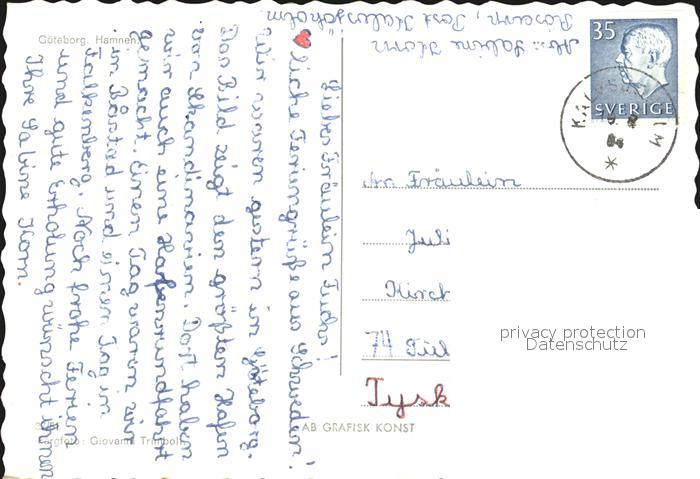 Göteborg. Hamnen.
Abs: Sabine Horn
Post
35
SVERIGE
Liebes Fräulein
♥liche Feriengrüße aus Schweden!
Wir waren gestern in Göteborg.
Das Bild zeigt den größten Hafen
von Skandinavien. Dort haben
wir auch eine Hafenrundfahrt
gemacht. Einen Tag waren wir
in Båstad und einen Tag in
Falkenberg. Noch frohe Ferien
und gute Erholung wünscht Ihnen
Ihre Sabine Horn.
An Fräulein
Juli
Kirch
74 Tül
Tysk
privacy protection
Datenschutz
AB GRAFISK KONST
Färgfoto: Giovanni Trimboli